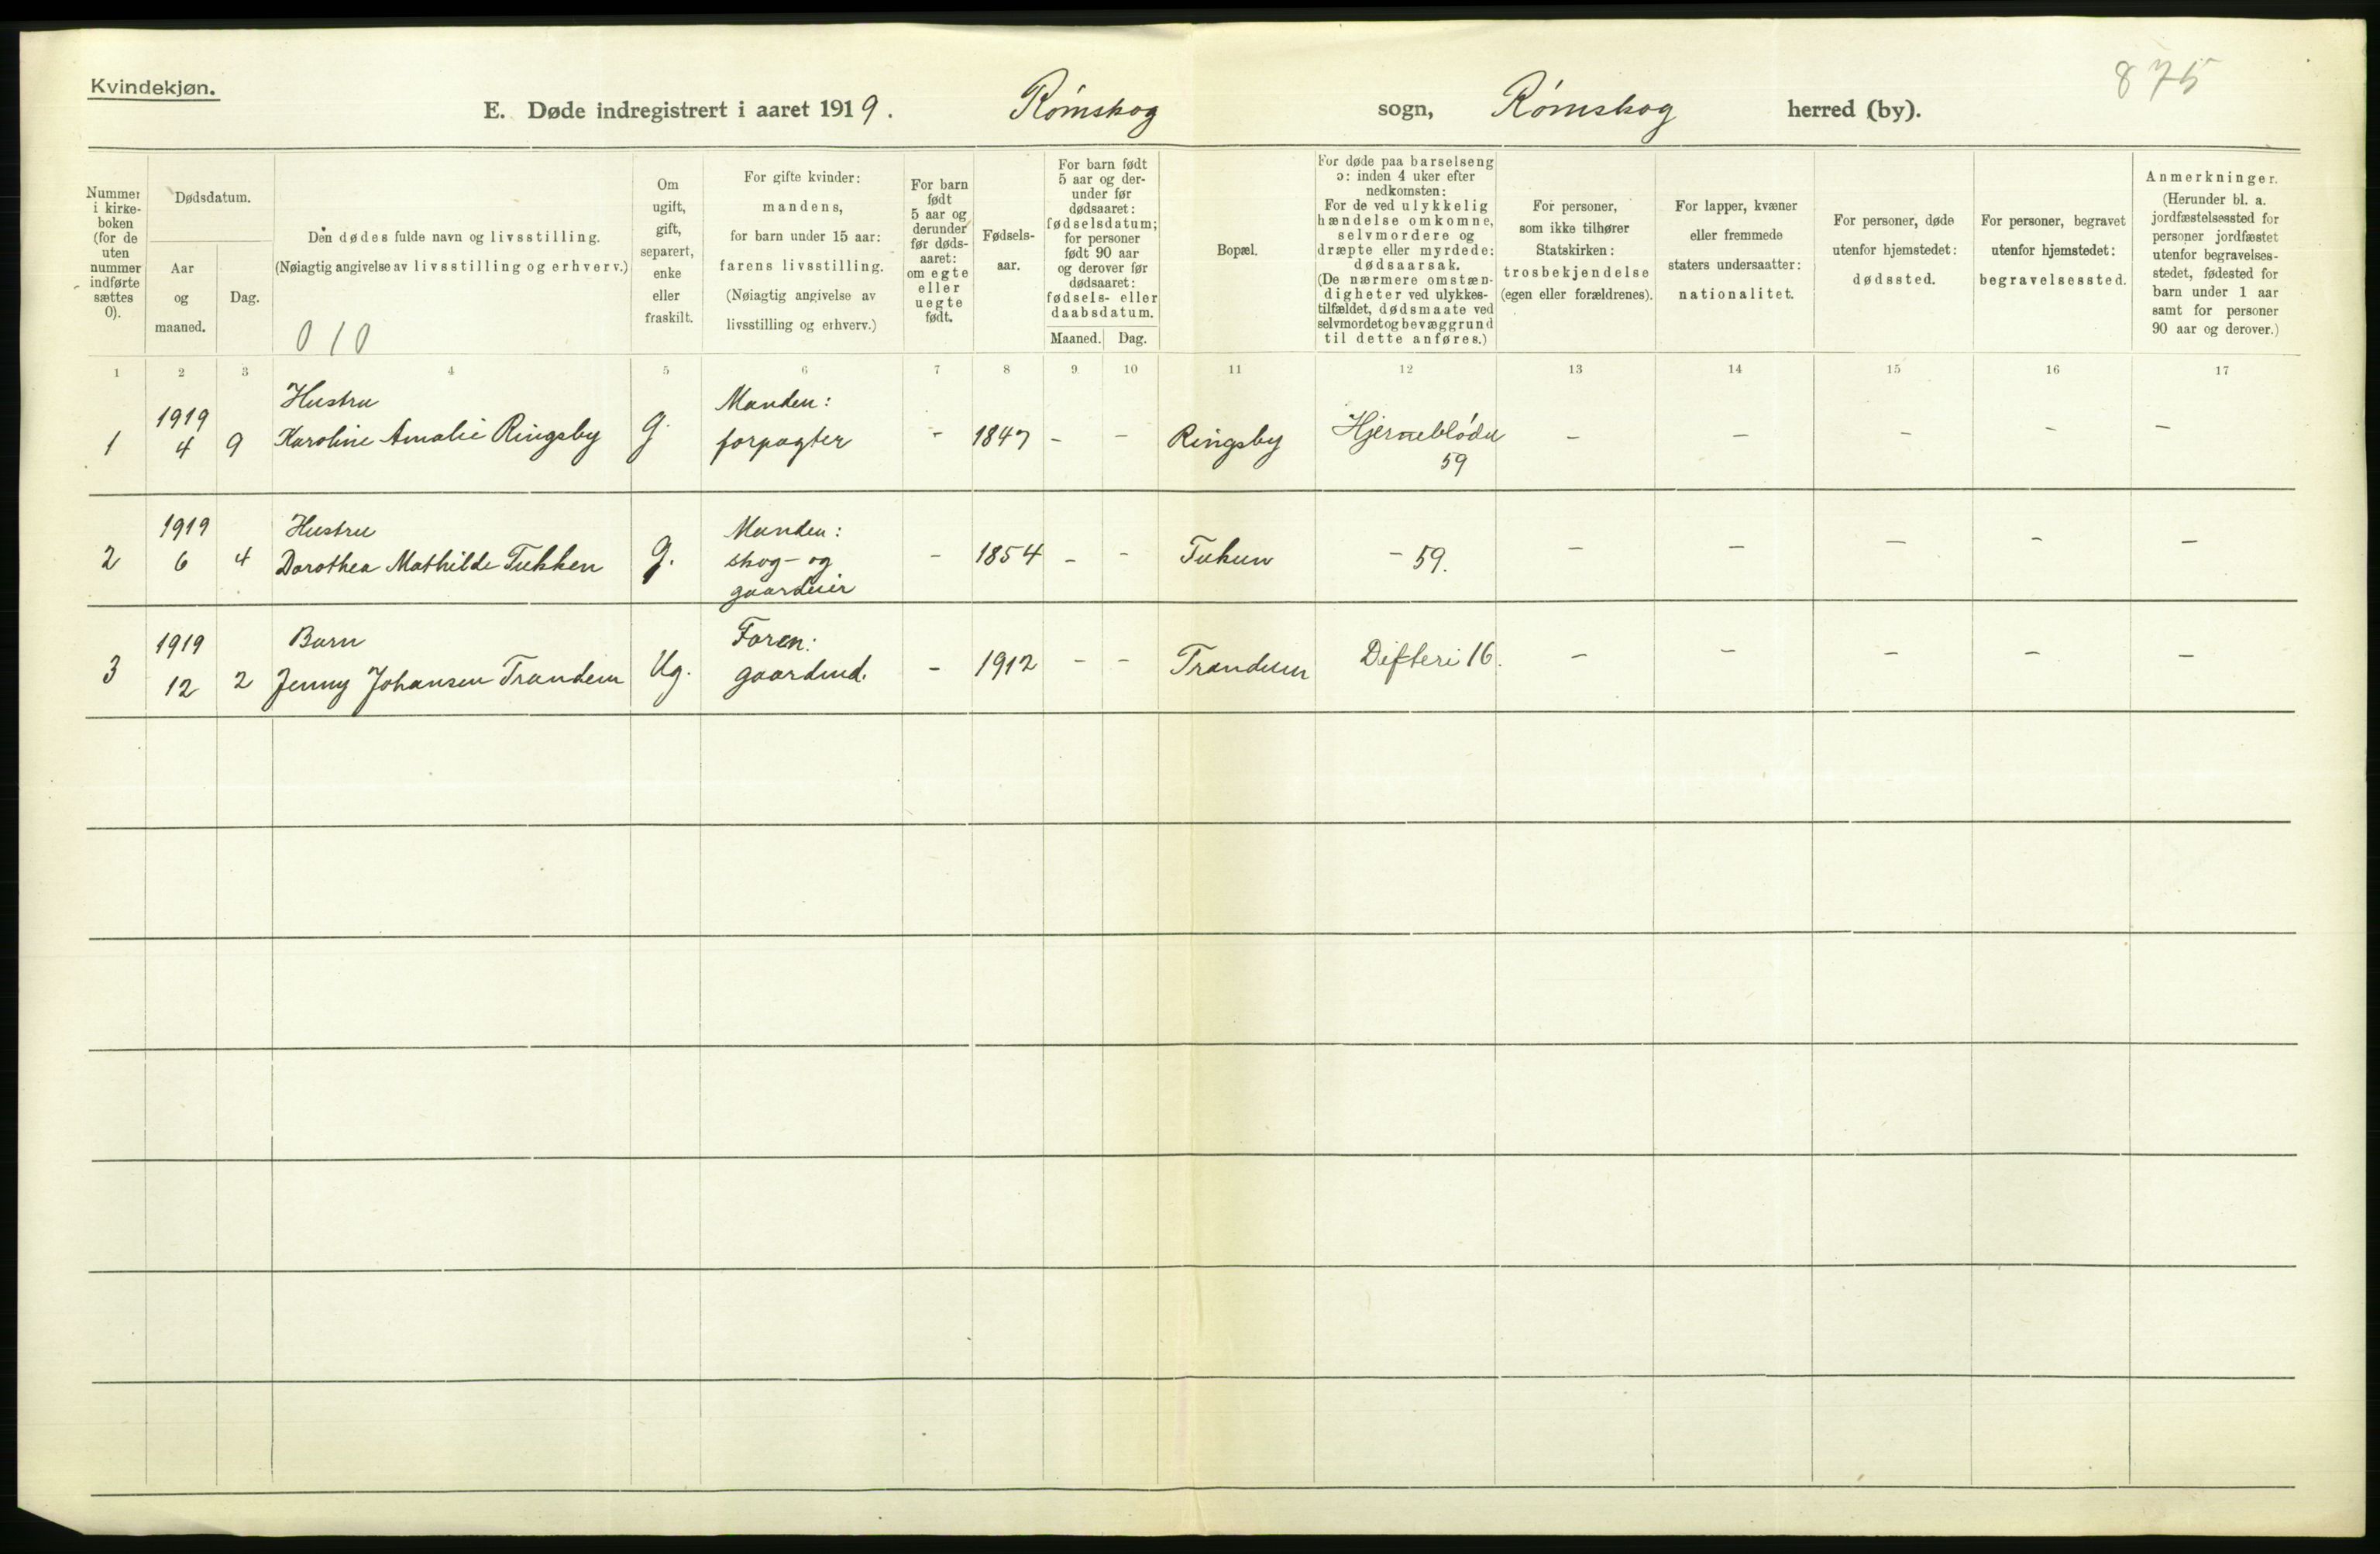 Kvindekjøn.
875
E. Døde indregistrert i aaret 1919. Rømskog sogn, Rømskog herred (by).
Nummer
i kirke-
boken
(for de
uten
nummer
indførte
sættes
0).
Dødsdatum.
Aar
og
maaned.
Dag.
Den dødes fulde navn og livsstilling.
(Nøiagtig angivelse av livsstilling og erhverv.)
010
Om
ugift,
gift,
separert,
enke
eller
fraskilt.
For gifte kvinder:
mandens,
for barn under 15 aar:
farens livsstilling.
(Nøiagtig angivelse av
livsstilling og erhverv.)
For barn
født
5 aar og
derunder
før døds-
aaret:
om egte
eller
uegte
født.
Fødsels-
aar.
For barn født
5 aar og der-
under før
dødsaaret:
fødselsdatum;
for personer
født 90 aar
og derover før
dødsaaret:
fødsels- eller
daabsdatum.
Maaned. Dag.
Bopæl.
For døde paa barselseng
ɔ: inden 4 uker efter
nedkomsten:
For de ved ulykkelig
hændelse omkomne,
selvmordere og
dræpte eller myrdede:
dødsaarsak.
(De nærmere omstæn-
digheter ved ulykkes-
tilfældet, dødsmaate ved
selvmordet og bevæggrund
til dette anføres.)
For personer,
som ikke tilhører
Statskirken:
trosbekjendelse
(egen eller forældrenes).
For lapper, kvæner
eller fremmede
staters undersaatter:
nationalitet.
For personer, døde
utenfor hjemstedet:
dødssted.
For personer, begravet
utenfor hjemstedet:
begravelsessted.
Anmerkninger.
(Herunder bl. a.
jordfæstelsessted for
personer jordfæstet
utenfor begravelses-
stedet, fødested for
barn under 1 aar
samt for personer
90 aar og derover.)
1 2 3 4 5 6 7 8 9 10 11 12 13 14 15 16 17
1919 Hustru Manden:
1 4 9 Karoline Amalie Ringsby g. forpagter - 1847 - - Ringsby Hjerneblødn - - - - -
59
1919 Hustru Manden:
2 6 4 Dorothea Mathilde Tukken g. skog- og - 1854 - - Tukun - 59. - - - - -
gaardeier
1919 Barn Faren:
3 12 2 Jenny Johansen Trandem Ug. gaardmd. - 1912 - - Trandem Difteri 16. - - - - -